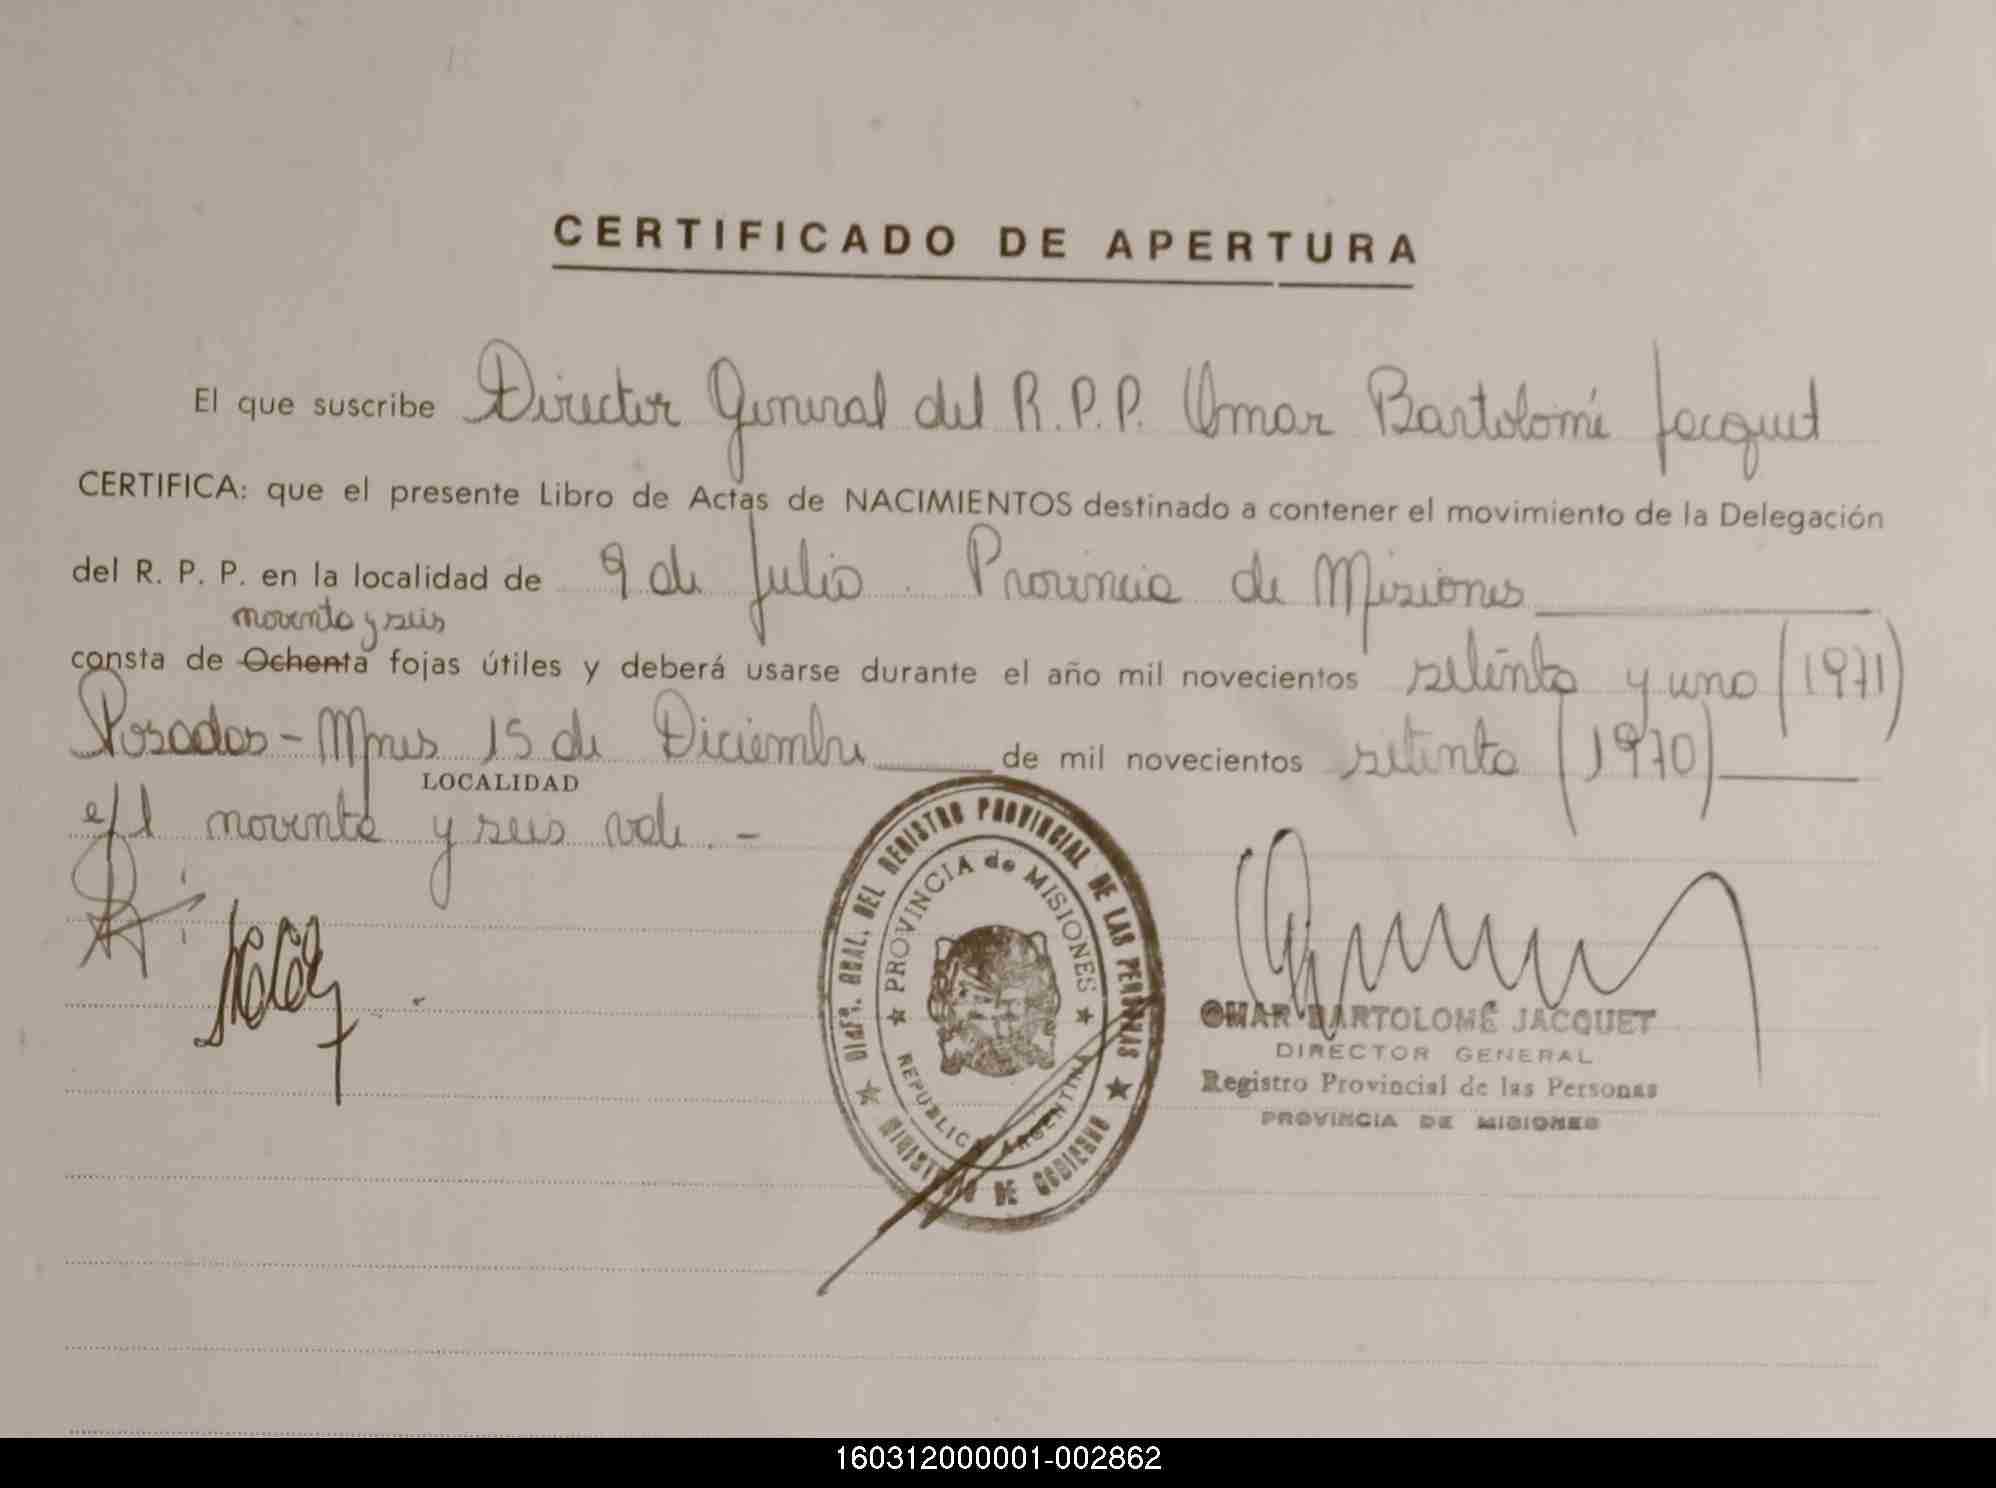 CERTIFICADO DE APERTURA
El que suscribe Director General del R.P.P. Omar Bartolomé Jacquet
CERTIFICA: que el presente Libro de Actas de NACIMIENTOS destinado a contener el movimiento de la Delegación
del R. P. P. en la localidad de 9 de Julio. Provincia de Misiones
noventa y seis
consta de Ochenta fojas útiles y deberá usarse durante el año mil novecientos setenta y uno (1971)
Posadas - Mnes 15 de Diciembre de mil novecientos setenta (1970)
LOCALIDAD
e/l noventa y seis vale. -
Direc. Gral. DEL REGISTRO PROVINCIAL DE LAS PERSONAS
PROVINCIA de MISIONES
REPUBLICA ARGENTINA
MINISTERIO DE GOBIERNO
OMAR BARTOLOMÉ JACQUET
DIRECTOR GENERAL
Registro Provincial de las Personas
PROVINCIA DE MISIONES
160312000001-002862